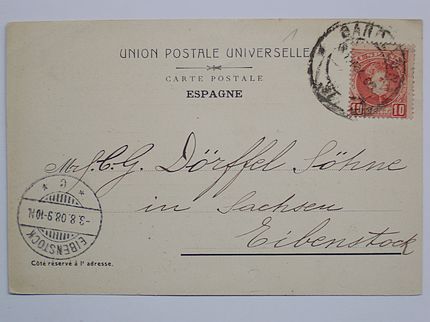 UNION POSTALE UNIVERSELLE
CARTE POSTALE
ESPAGNE
10 10
Mr. C. G. Dörffel Söhne
in Sachsen
Eibenstock
* c *
-3.8.08.9-10.N.
EIBENSTOCK
Côté réservé à l' adresse.